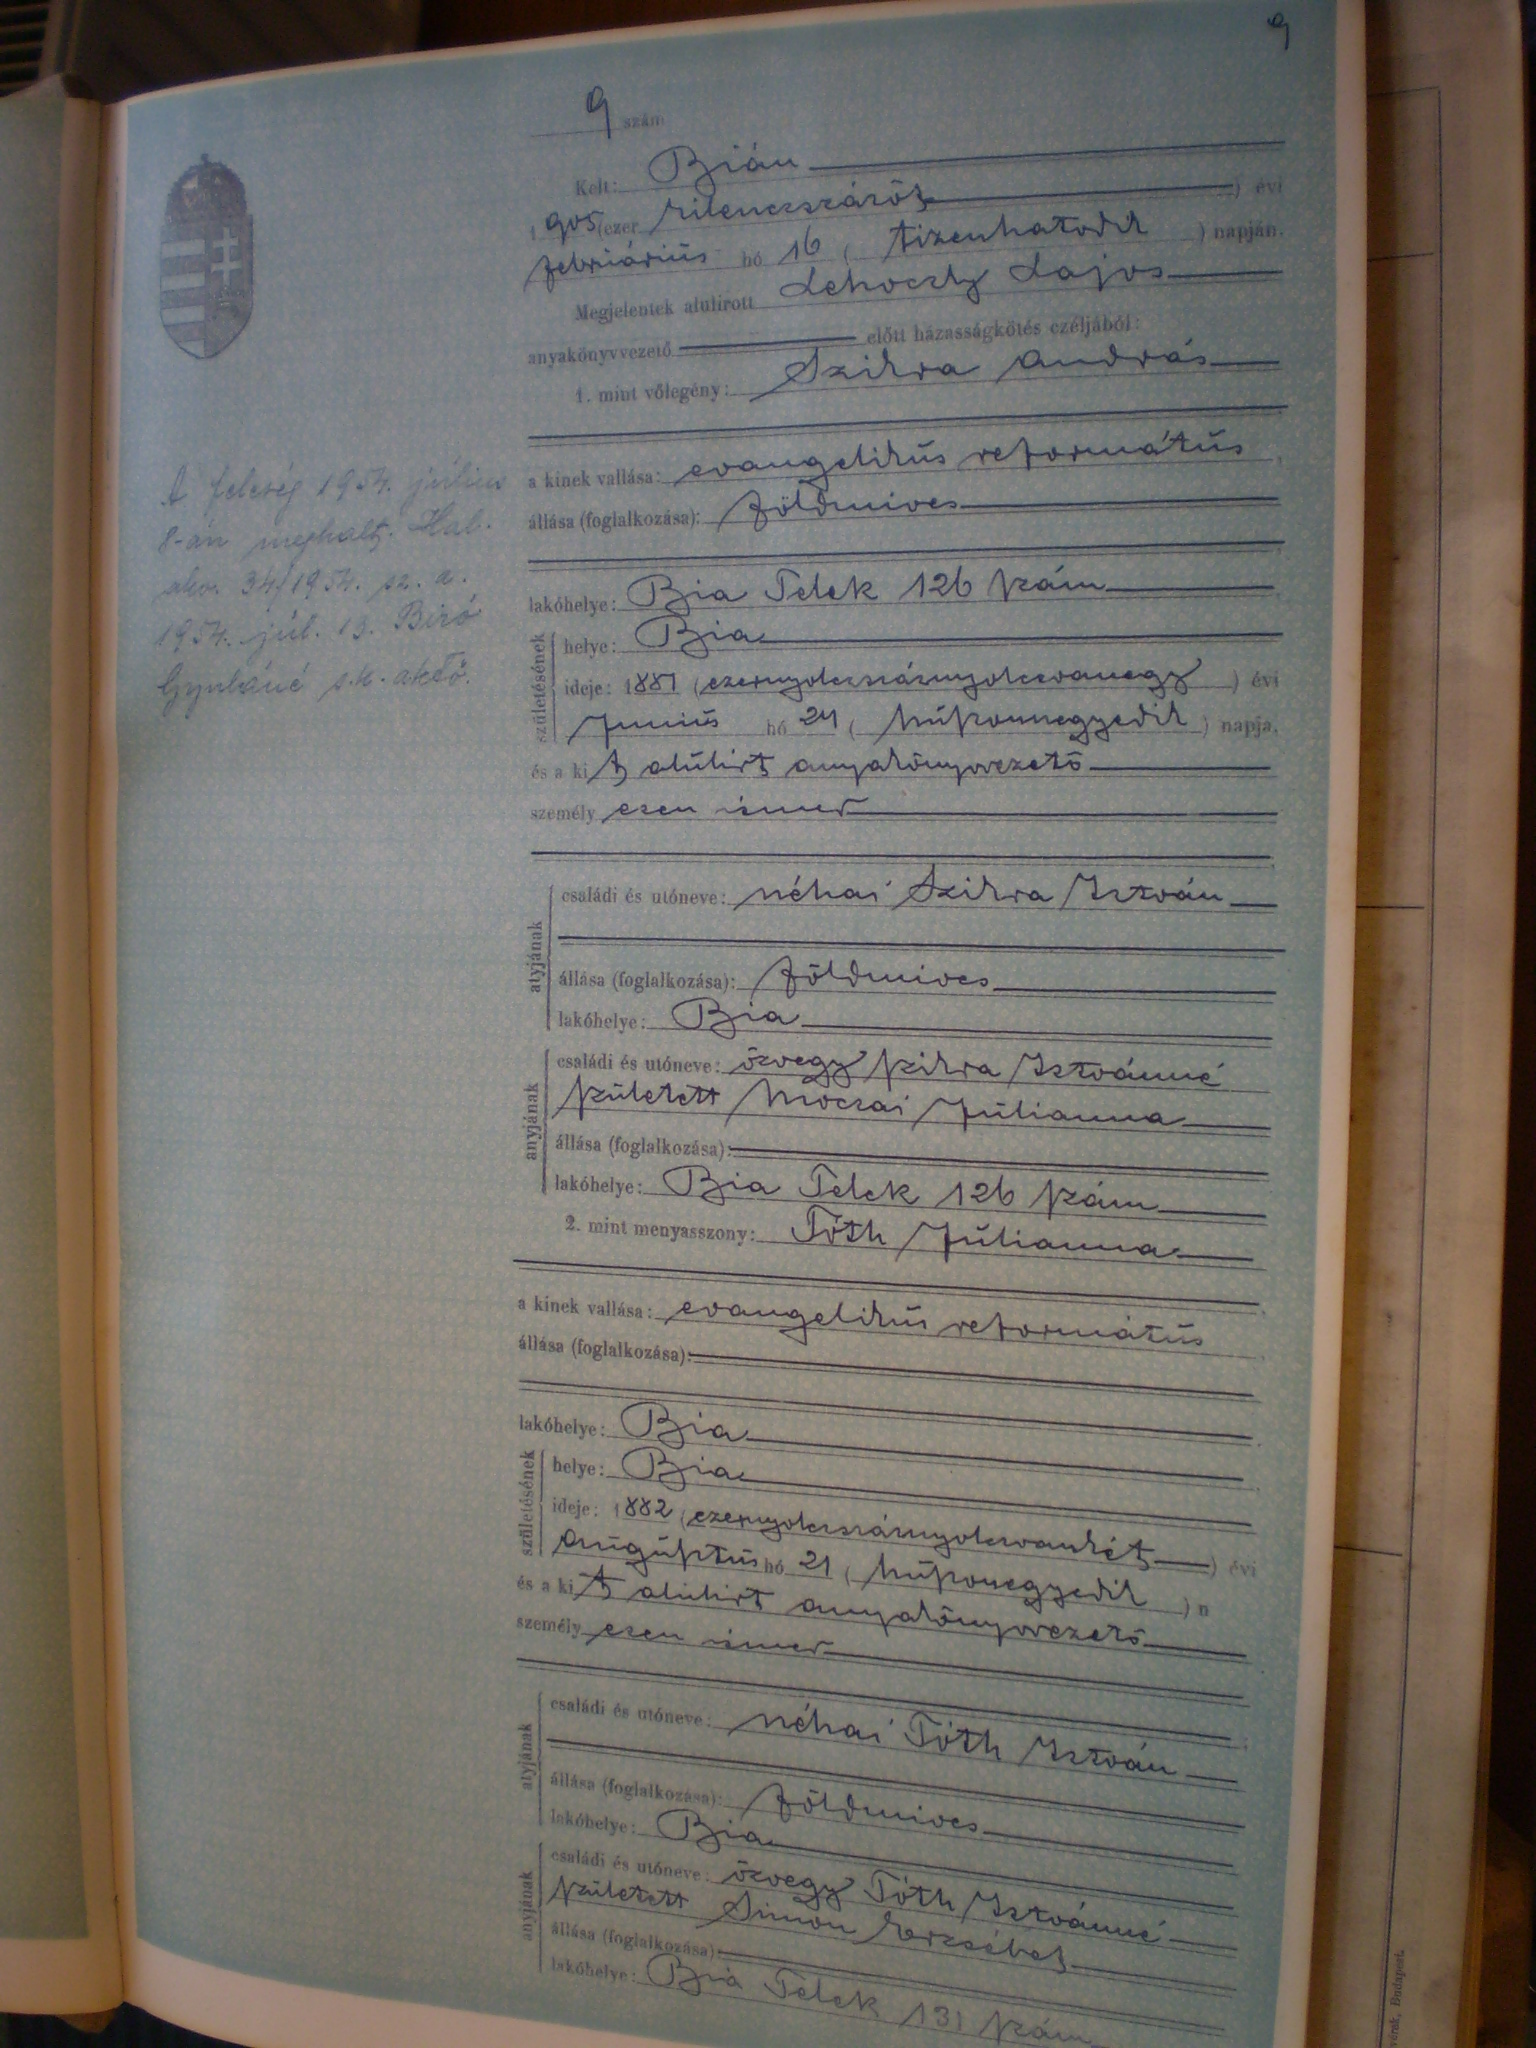 9
9 szám
Kelt: Bián
1905 (ezer kilenczszázöt) évi
februáŕius hó 16 (tizenhatodik) napján.
Megjelentek alulírott Lehoczky Lajos
anyakönyvvezető előtt házasságkötés czéljából:
1. mint vőlegény: Szikra András
a kinek vallása: evangelikus református
állása (foglalkozása): földmives
lakóhelye: Bia Telek 126 szám
születésének
helye: Bia
ideje: 1881 (ezernyolczszáznyolczvanegy) évi
Junius hó 24 (húszonnegyedik) napja,
és a kit alulirt anyakönyvvezető
személyesen ismer
atyjának
családi és utóneve: néhai Szikra István
állása (foglalkozása): földmives
lakóhelye: Bia
anyjának
családi és utóneve: özvegy Szikra Istvánné
született Moczai Júlianna
állása (foglalkozása):
lakóhelye: Bia Telek 126 szám
2. mint menyasszony: Tóth Júlianna
a kinek vallása: evangelikus református
állása (foglalkozása):
lakóhelye: Bia
születésének
helye: Bia
ideje: 1882 (ezernyolczszáznyolczvankét) évi
augusztus hó 21 (húszonegyedik) n
és a kit alulirt anyakönyvvezető
személyesen ismer
atyjának
családi és utóneve: néhai Tóth István
állása (foglalkozása): földmives
lakóhelye: Bia
anyjának
családi és utóneve: özvegy Tóth Istvánné
született Simon Erzsébet
állása (foglalkozása):
lakóhelye: Bia Telek 131 szám
A feleség 1954. július
8-án meghalt. Hal.
akv. 34/1954. sz. a.
1954. júl. 13. Biró
Gyuláné s.k. akvő.
Budapest.